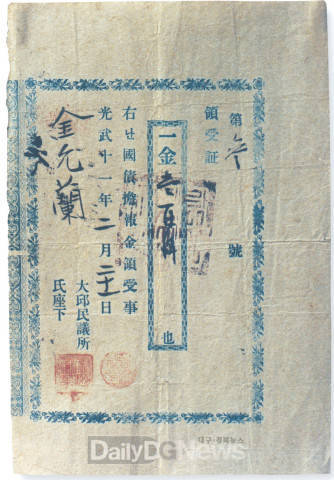 第 號
領受証
一金 百 也
右난國債擔報金領受事
光武十一年二月 日
大邱民議所
金允蘭 氏座下
대구·경북뉴스
DailyDGNews